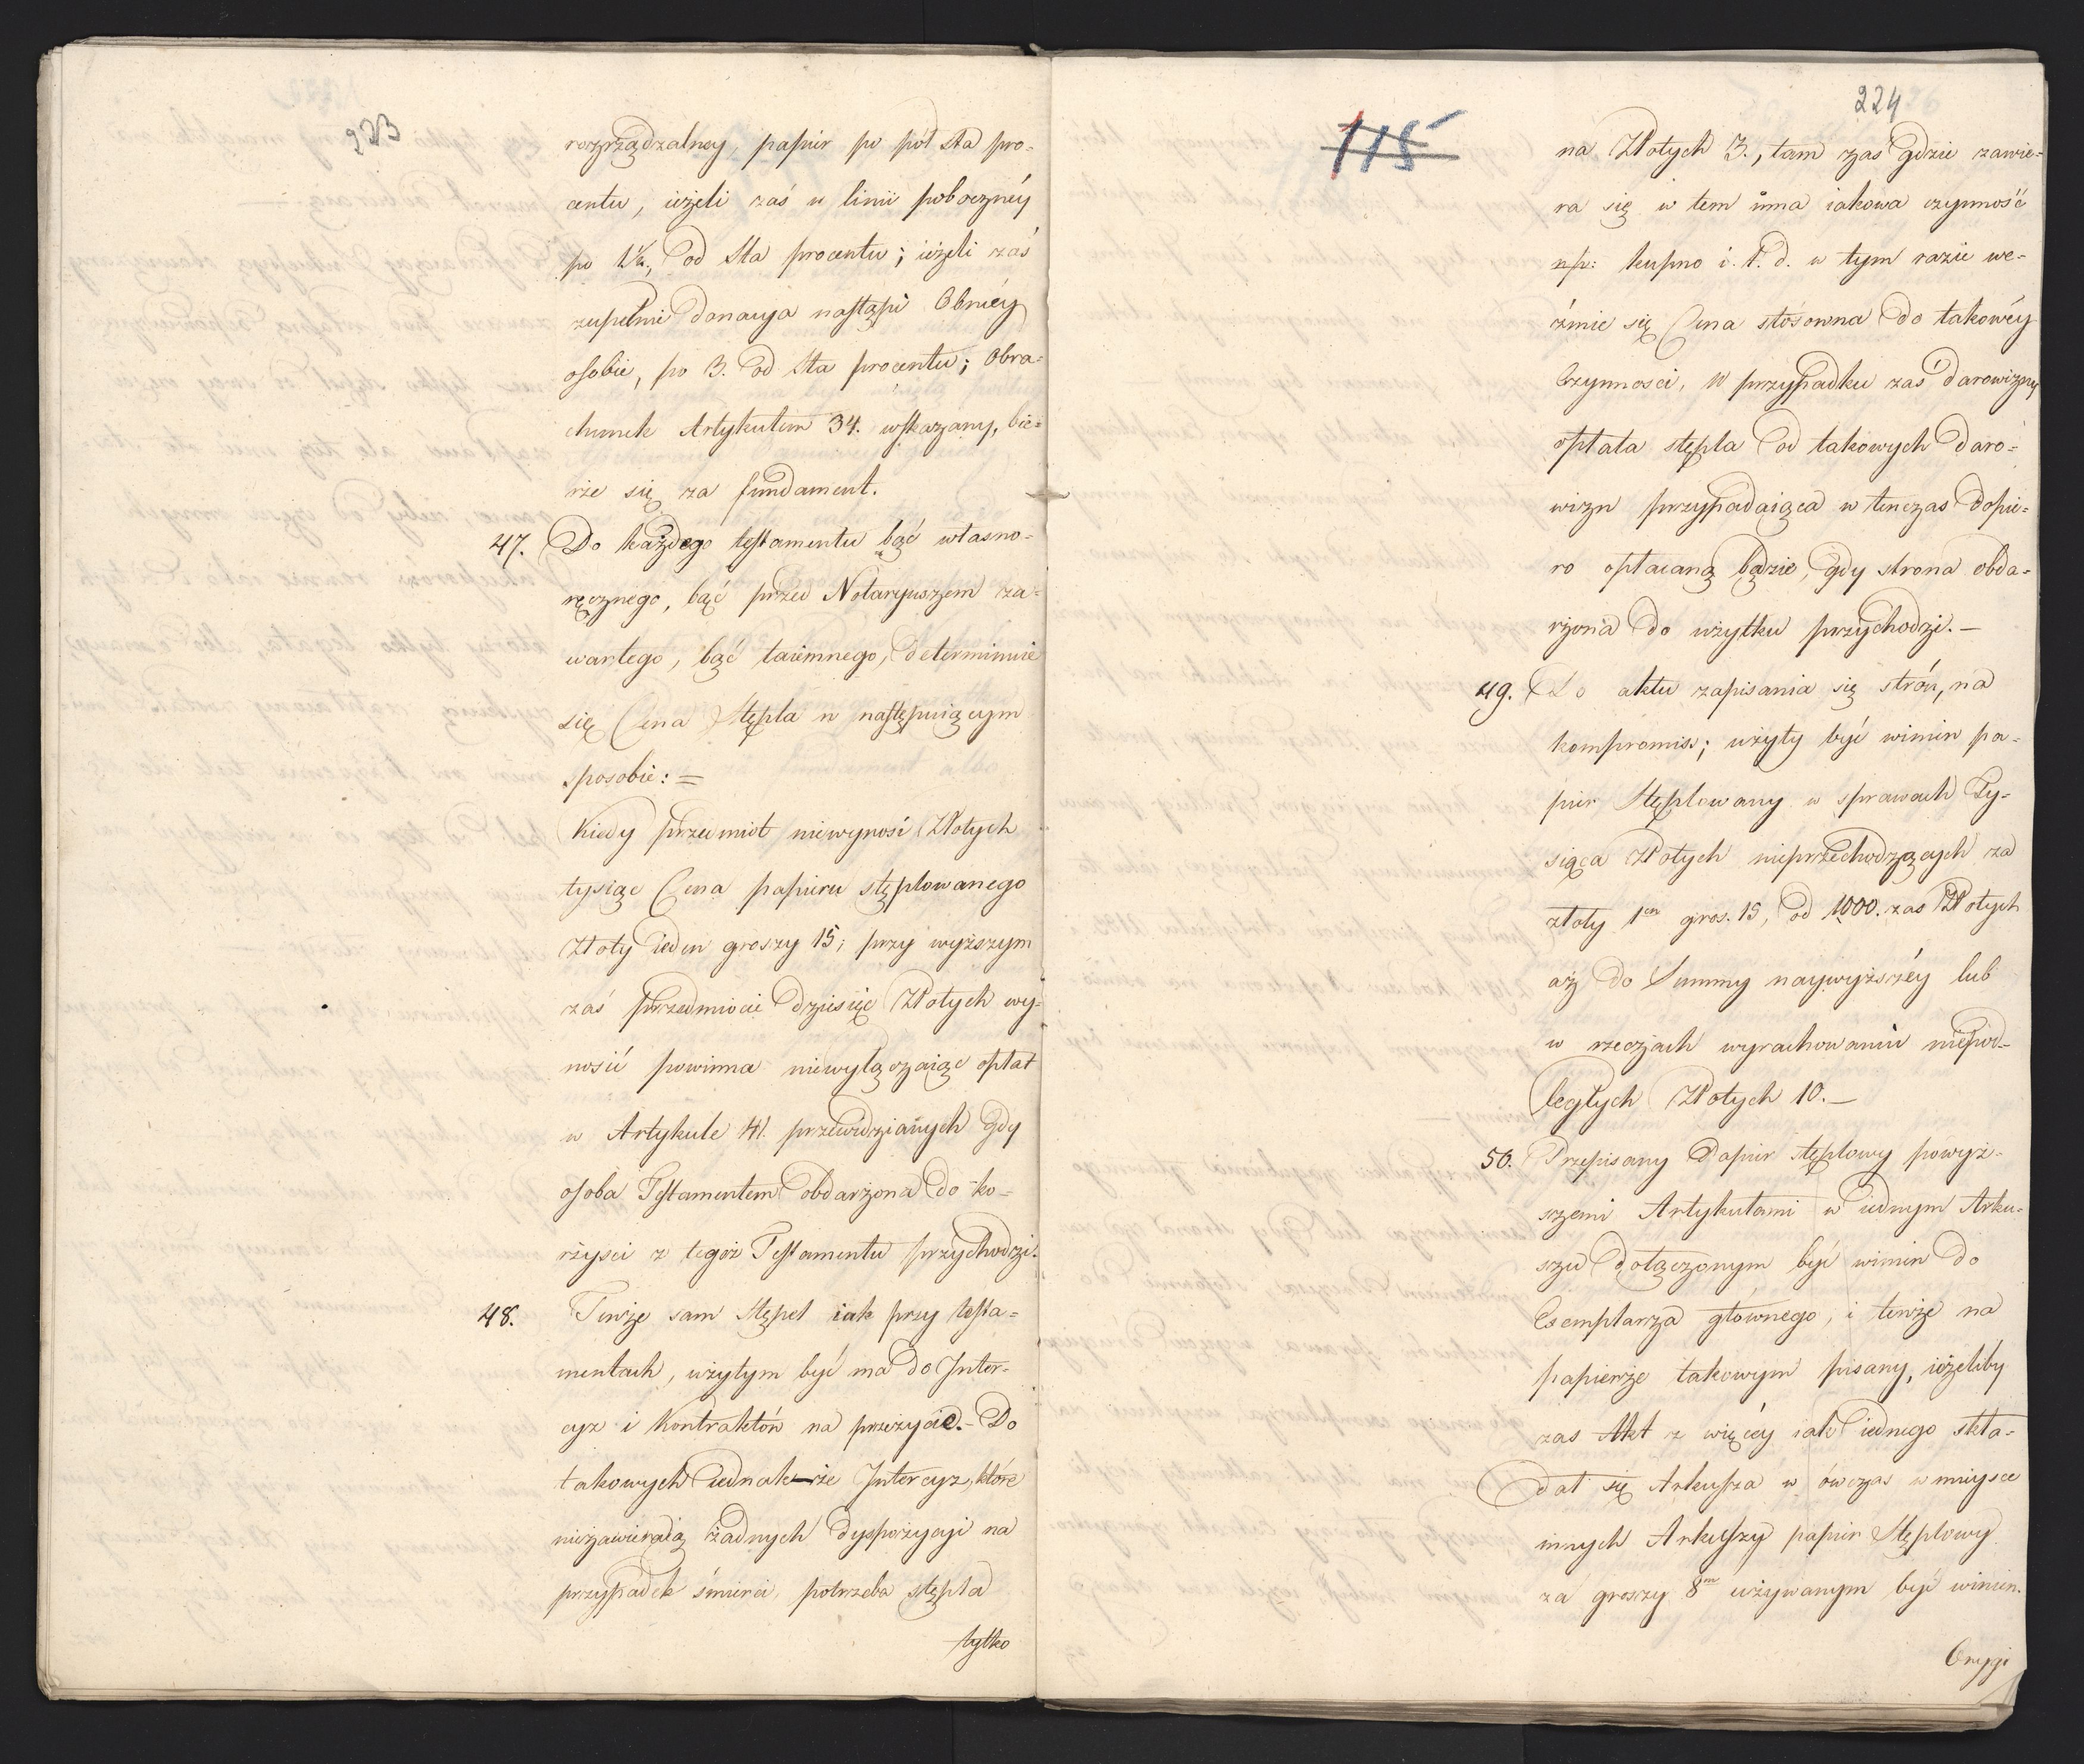 223
rozrządzalney, papier po pół sta pro-
centu, ieżeli zaś w linii poboczney
po 1½, od sta procentu; ieżeli zaś
zupełnie donacya nastąpi Obcéy
osobie, po 3. od sta procentu; Obra-
chunek Artykułem 34. wskazany, bie-
rze się za fundament.
47. Do każdego testamentu bąć własno-
ręcznego, bąć przed Notaryuszem za-
wartego, bąć taiemnego, determinuie
się Cena Stępla w następuiącym
sposobie: =
Kiedy przedmiot niewynosi Złotych
tysiąc Cena papieru stęplowanego
Złoty ieden groszy 15; przy wyższym
zaś przedmiocie dziesięć Złotych wy-
nosić powinna niewyłączaiąc opłat
w Artykule 41. przewidzianych gdy
osoba Testamentem obdarzona do ko-
rzyści z tegoż Testamentu przychodzi.
48. Tenże sam Stępel iak przy testa-
mentach, użytym być ma do Inter-
cyz i Kontraktów na przeżycie. - Do
takowych iednak-że Intercyz, które
niezawieraią żadnych dyspozycyi na
przypadek śmierci, potrzeba stępla
tylko
224
115
na Złotych 3., tam zas gdzie zawie-
ra się w tem inna iakowa czynność
np: kupno i. t. d. w tym razie we-
źmie się Cena stósowna do takowéy
Czynnosci, W przypadku zaś darowizny
opłata stępla od takowych daro-
wizn przypadaiąca w tenczas dopie-
ro opłacaną będzie, gdy strona obda-
rzona do użytku przychodzi. -
49. Do aktu zapisania się strón, na
kompromiss; użyty być winien pa-
pier Stęplowany w sprawach Ty-
siąca Złotych nieprzechodzących za
złoty 1en gros. 15, od 1000. zas Złotych
aż do Summy naywyższéy lub
w rzeczach wyrachowaniu niepod-
ległych Złotych 10. -
50. Przepisany Papier stęplowy powyż-
szemi Artykułami w iednym Arku-
szu dołączonym być winien do
Exemplarza głównego, i tenże na
papierze takowym pisany, ieżeliby
zas Akt z więcéy iak iednego skła-
dał się Arkusza w ówczas w mieysce
innych Arkuszy papier Stęplowy
za groszy 8m używanym być winien.
Orygi